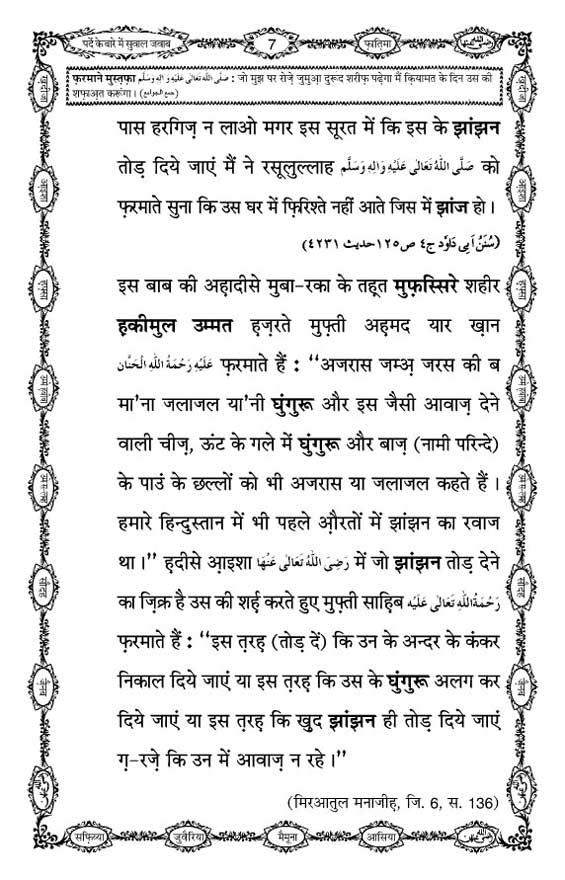 पर्दे के बारे में सुवाल जवाब
7
फ़ातिमा
फ़रमाने मुस्तफ़ा صَلَّى اللهُ تَعَالٰى عَلَيْهِ وَاٰلِهٖ وَسَلَّم : जो मुझ पर रोज़े जुमुआ़ दुरूद शरीफ़ पढ़ेगा मैं क़ियामत के दिन उस की
शफ़ाअ़त करूंगा। (جمع الجوامع)
पास हरगिज़ न लाओ मगर इस सूरत में कि इस के झांझन
तोड़ दिये जाएं मैं ने रसूलुल्लाह صَلَّى اللهُ تَعَالٰى عَلَيْهِ وَاٰلِهٖ وَسَلَّم को
फ़रमाते सुना कि उस घर में फ़िरिश्ते नहीं आते जिस में झांज हो।
(سُنَنُ اَبِي دَاوٗد ج٤ ص١٢٥ حديث ٤٢٣١)
इस बाब की अह़ादीसे मुबा-रका के तह़त मुफ़स्सिरे शहीर
ह़कीमुल उम्मत ह़ज़रते मुफ़्ती अह़मद यार ख़ान
عَلَيْهِ رَحْمَةُ اللهِ الْحَنَّان फ़रमाते हैं : ‘‘अजरास जम्अ़ जरस की ब
मा'ना जलाजल या'नी घुंगुरू और इस जैसी आवाज़ देने
वाली चीज़, ऊंट के गले में घुंगुरू और बाज़ (नामी परिन्दे)
के पाउं के छल्लों को भी अजरास या जलाजल कहते हैं।
हमारे हिन्दुस्तान में भी पहले औ़रतों में झांझन का रवाज
था।’’ ह़दीसे आ़इशा رَضِيَ اللهُ تَعَالٰى عَنْهَا में जो झांझन तोड़ देने
का ज़िक्र है उस की शर्ह़ करते हुए मुफ़्ती साह़िब رَحْمَةُ اللهِ تَعَالٰى عَلَيْه
फ़रमाते हैं : ‘‘इस त़रह़ (तोड़ दें) कि उन के अन्दर के कंकर
निकाल दिये जाएं या इस त़रह़ कि उस के घुंगुरू अलग कर
दिये जाएं या इस त़रह़ कि ख़ुद झांझन ही तोड़ दिये जाएं
ग़-रज़े कि उन में आवाज़ न रहे।’’
(मिरआतुल मनाजीह़, जि. 6, स. 136)
सफ़िय्या
जुवैरिया
मैमूना
आसिया